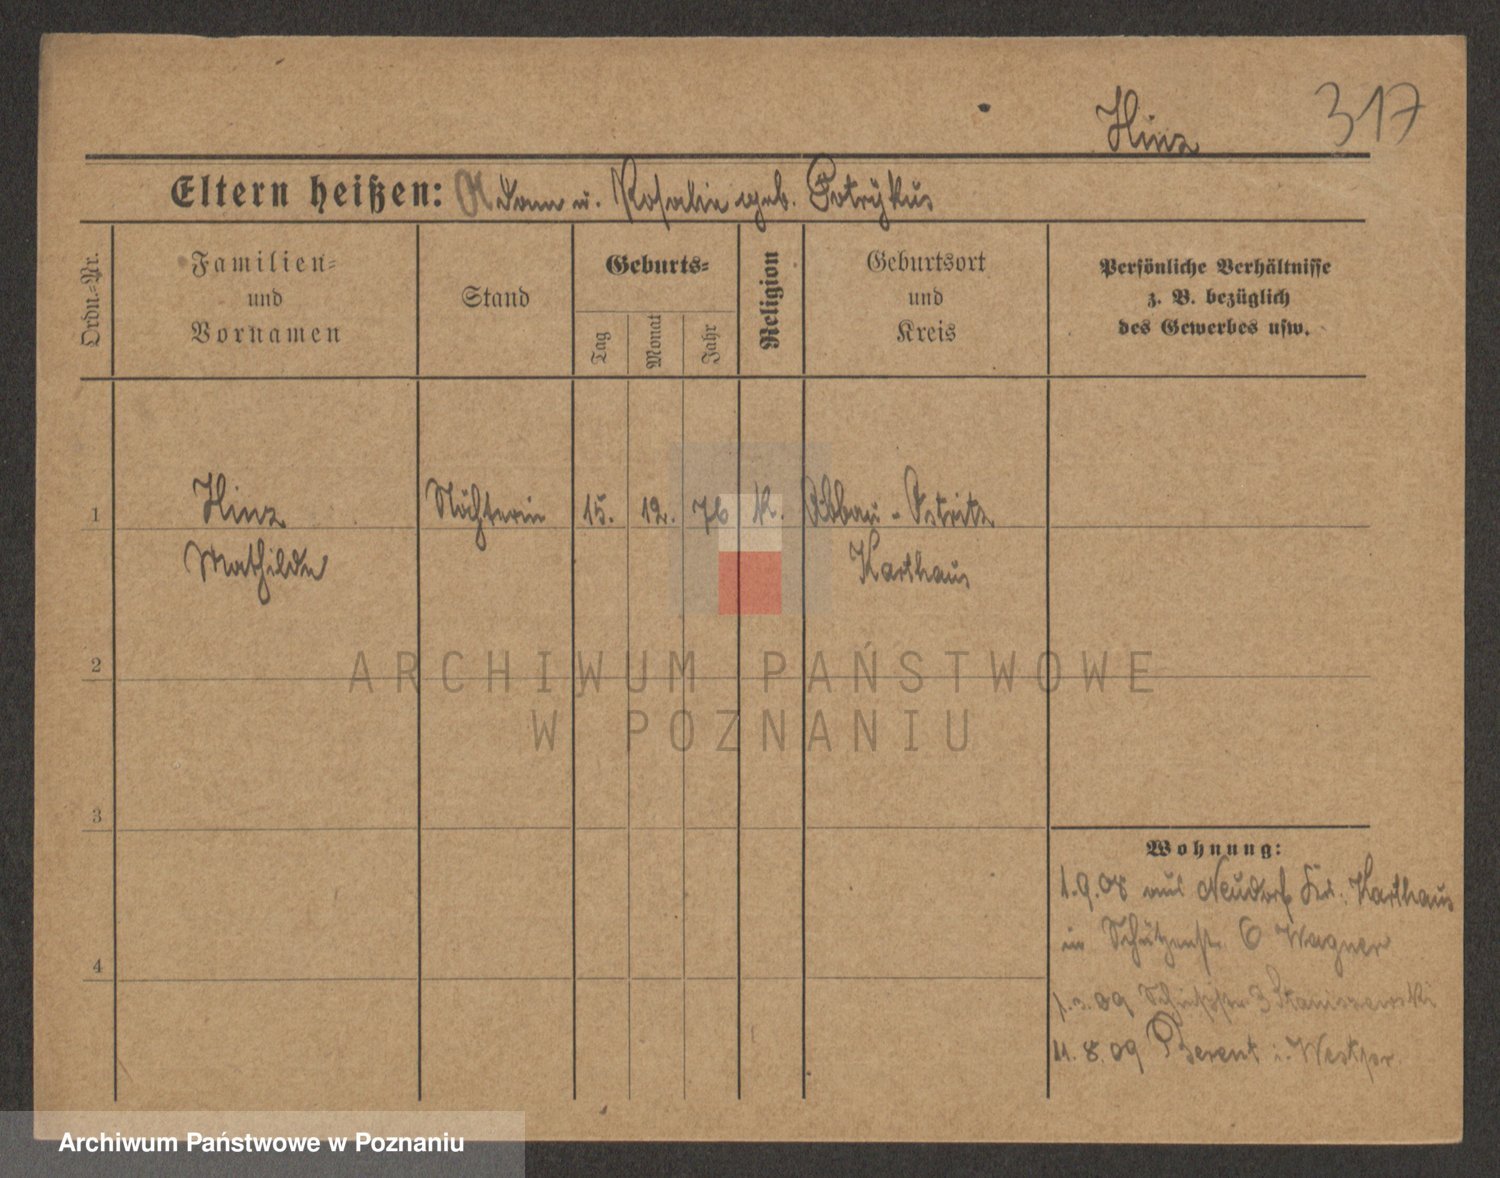 Hinz 317
Eltern heißen: Adam u. Rosalie geb. Potrykus
Ordn.-Nr.
Familien-
und
Vornamen
Stand
Geburts-
Tag
Monat
Jahr
Religion
Geburtsort
und
Kreis
Persönliche Verhältnisse
z. B. bezüglich
des Gewerbes usw.
1 Hinz 15. 12. 76 K. Abbau - Ostritz
Mathilde Karthaus
2
3
4
Wohnung:
1.9.08 aus Neudorf Kr. Karthaus
in Schützenstr. 6 Wagner
09 3 Staniszewski
11.8.09 Berent i. Westpr.
ARCHIWUM PAŃSTWOWE
W POZNANIU
Archiwum Państwowe w Poznaniu